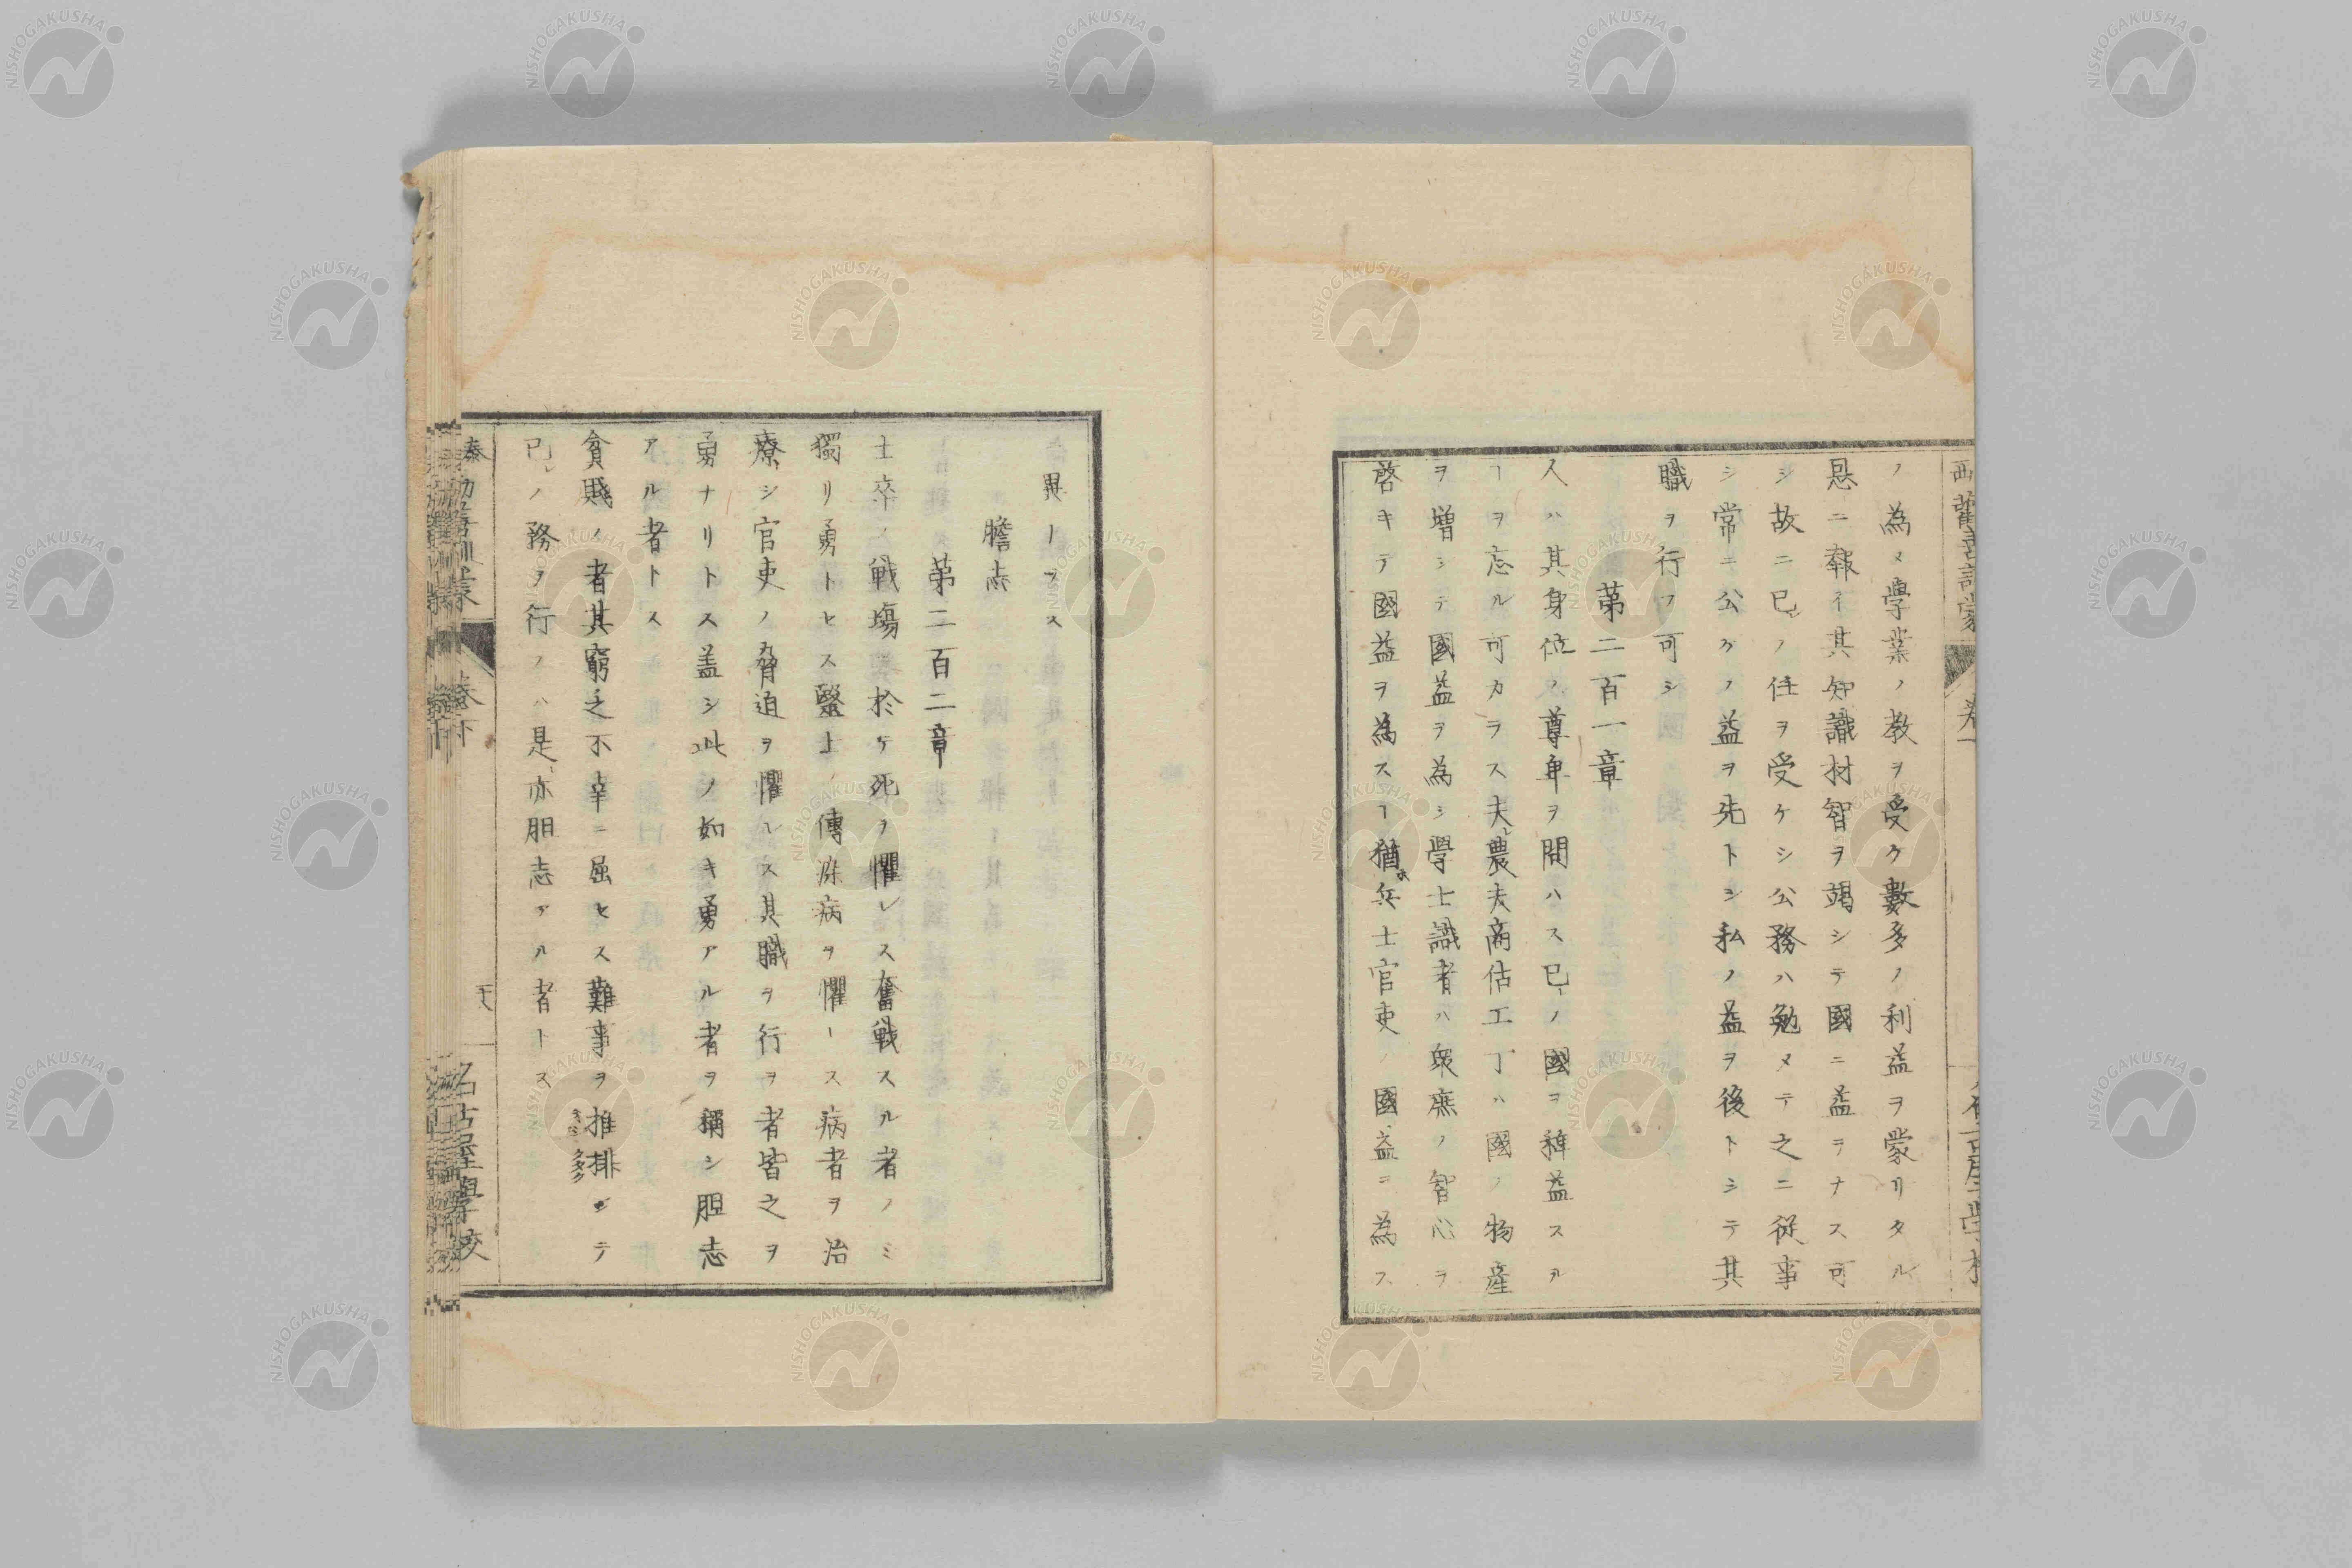 ノ為メ學業ノ教ヲ受ケ數多ノ利益ヲ蒙リタル
恩ニ報イ其知識材智ヲ竭シテ國ニ益ヲナス可
シ故ニ已レノ任ヲ受ケシ公務ハ勉メテ之ニ従事
シ常ニ公ケノ益ヲ先トシ私ノ益ヲ後トシテ其
職ヲ行フ可シ
第二百一章
人ハ其身位ノ尊卑ヲ問ハス已レノ國ヲ稗益スル
ヿヲ忘ル可カラス夫レ農夫商估工丁ハ國ノ物産
ヲ増シテ國益ヲ為シ學士識者ハ衆庶ノ智心ヲ
啓キテ國益ヲ為スヿ猶ホ兵士官吏ノ國益ヲ為ス
異ーヲス
膽志
第二百二章
士卒ノ戦場ニ於ケ死ヲ懼レス奮戦スル者ノミ
獨リ勇トセス醫士ノ傳染病ヲ懼ースス病者ヲ治
療シ官吏ノ脅迫ヲ懼レス其職ヲ行ヲ者皆之ヲ
勇ナリトス盖シ此ノ如キ勇アル者ヲ稱シ胆志
アル者トス
貧賤ノ者其窮乏不幸ニ屈セス難事ヲ推排シテ
已レノ務ヲ行フハ是レ亦胆志アル者トス
泰西勸善訓蒙
卷下
名古屋學校
NISHOGAKUSHA